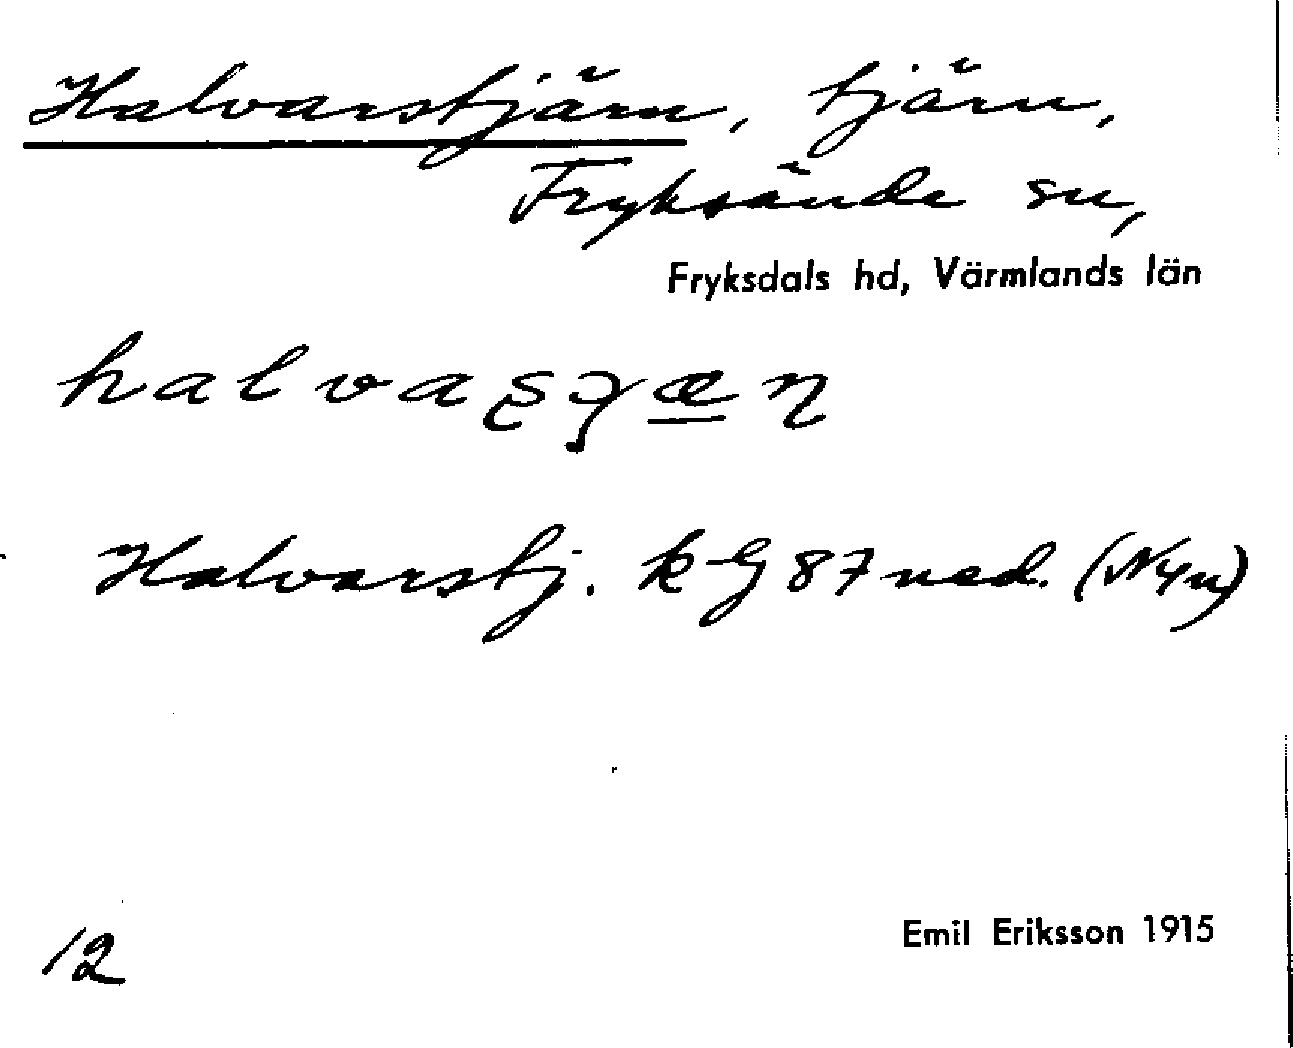 Halvarstjärn, tjärn,
Fryksände sn,
Fryksdals hd, Värmlands län
Halvarstj. k G 87 ned. (Nyn)
12
Emil Eriksson 1915